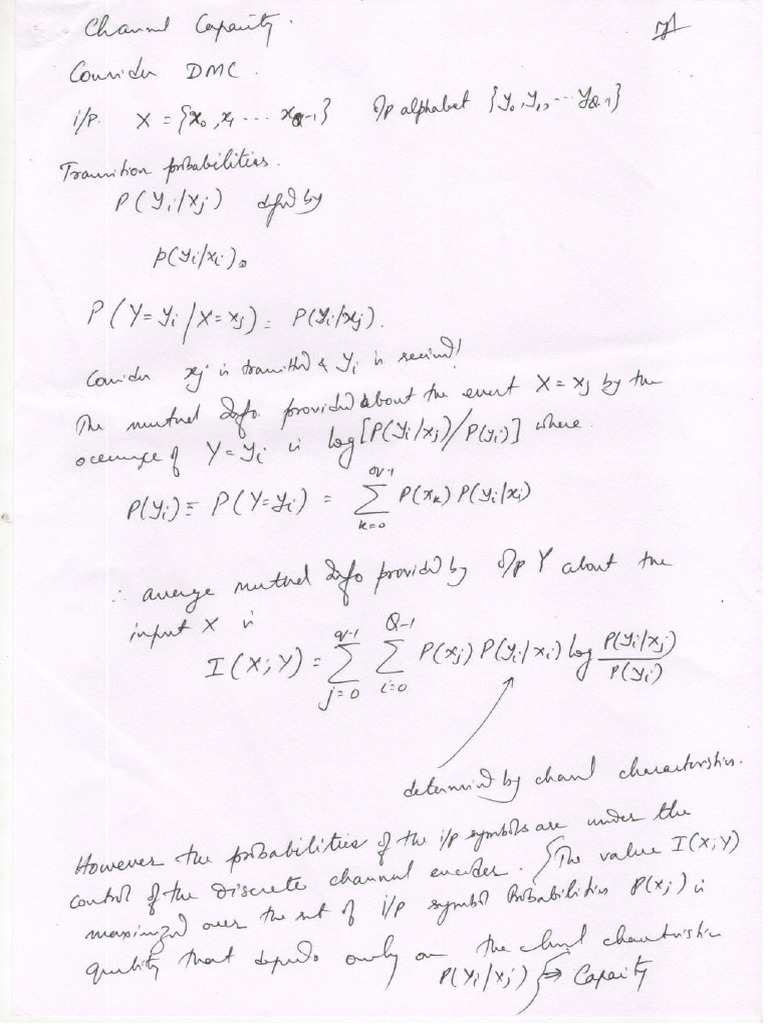 Channel Capacity.
Consider DMC.
i/p. X = {x₀, x₁ ... x_{q-1}} o/p alphabet {y₀, y₁, ... y_{Q-1}}
Transition probabilities.
P(y_i/x_j) defd by
p(y_i/x_i).
P(Y=y_i / X=x_j) = P(y_i/x_j).
Consider x_j is transmittd & y_i is received!
The mutual Info. provided about the event X = x_j by the
occurence of Y=y_i is log[P(y_i/x_j)/P(y_i)] where.
P(y_i) ≡ P(Y=y_i) = ∑_{k=0}^{q-1} P(x_k) P(y_i/x_i)
∴ average mutual Info provided by o/p Y about the
input X is
I(X;Y) = ∑_{j=0}^{q-1} ∑_{i=0}^{Q-1} P(x_j) P(y_i/x_i) log P(y_i/x_j)/P(y_i)
determined by channel characteristics.
However the probabilities of the i/p symbols are under the
control of the Discrete channel encoder. {The value I(X;Y)
maximized over the set of i/p symbol Probabilities P(x_j) is
quantity that depends only on the channel characteristic
P(y_i/x_j)} ⇒ Capacity